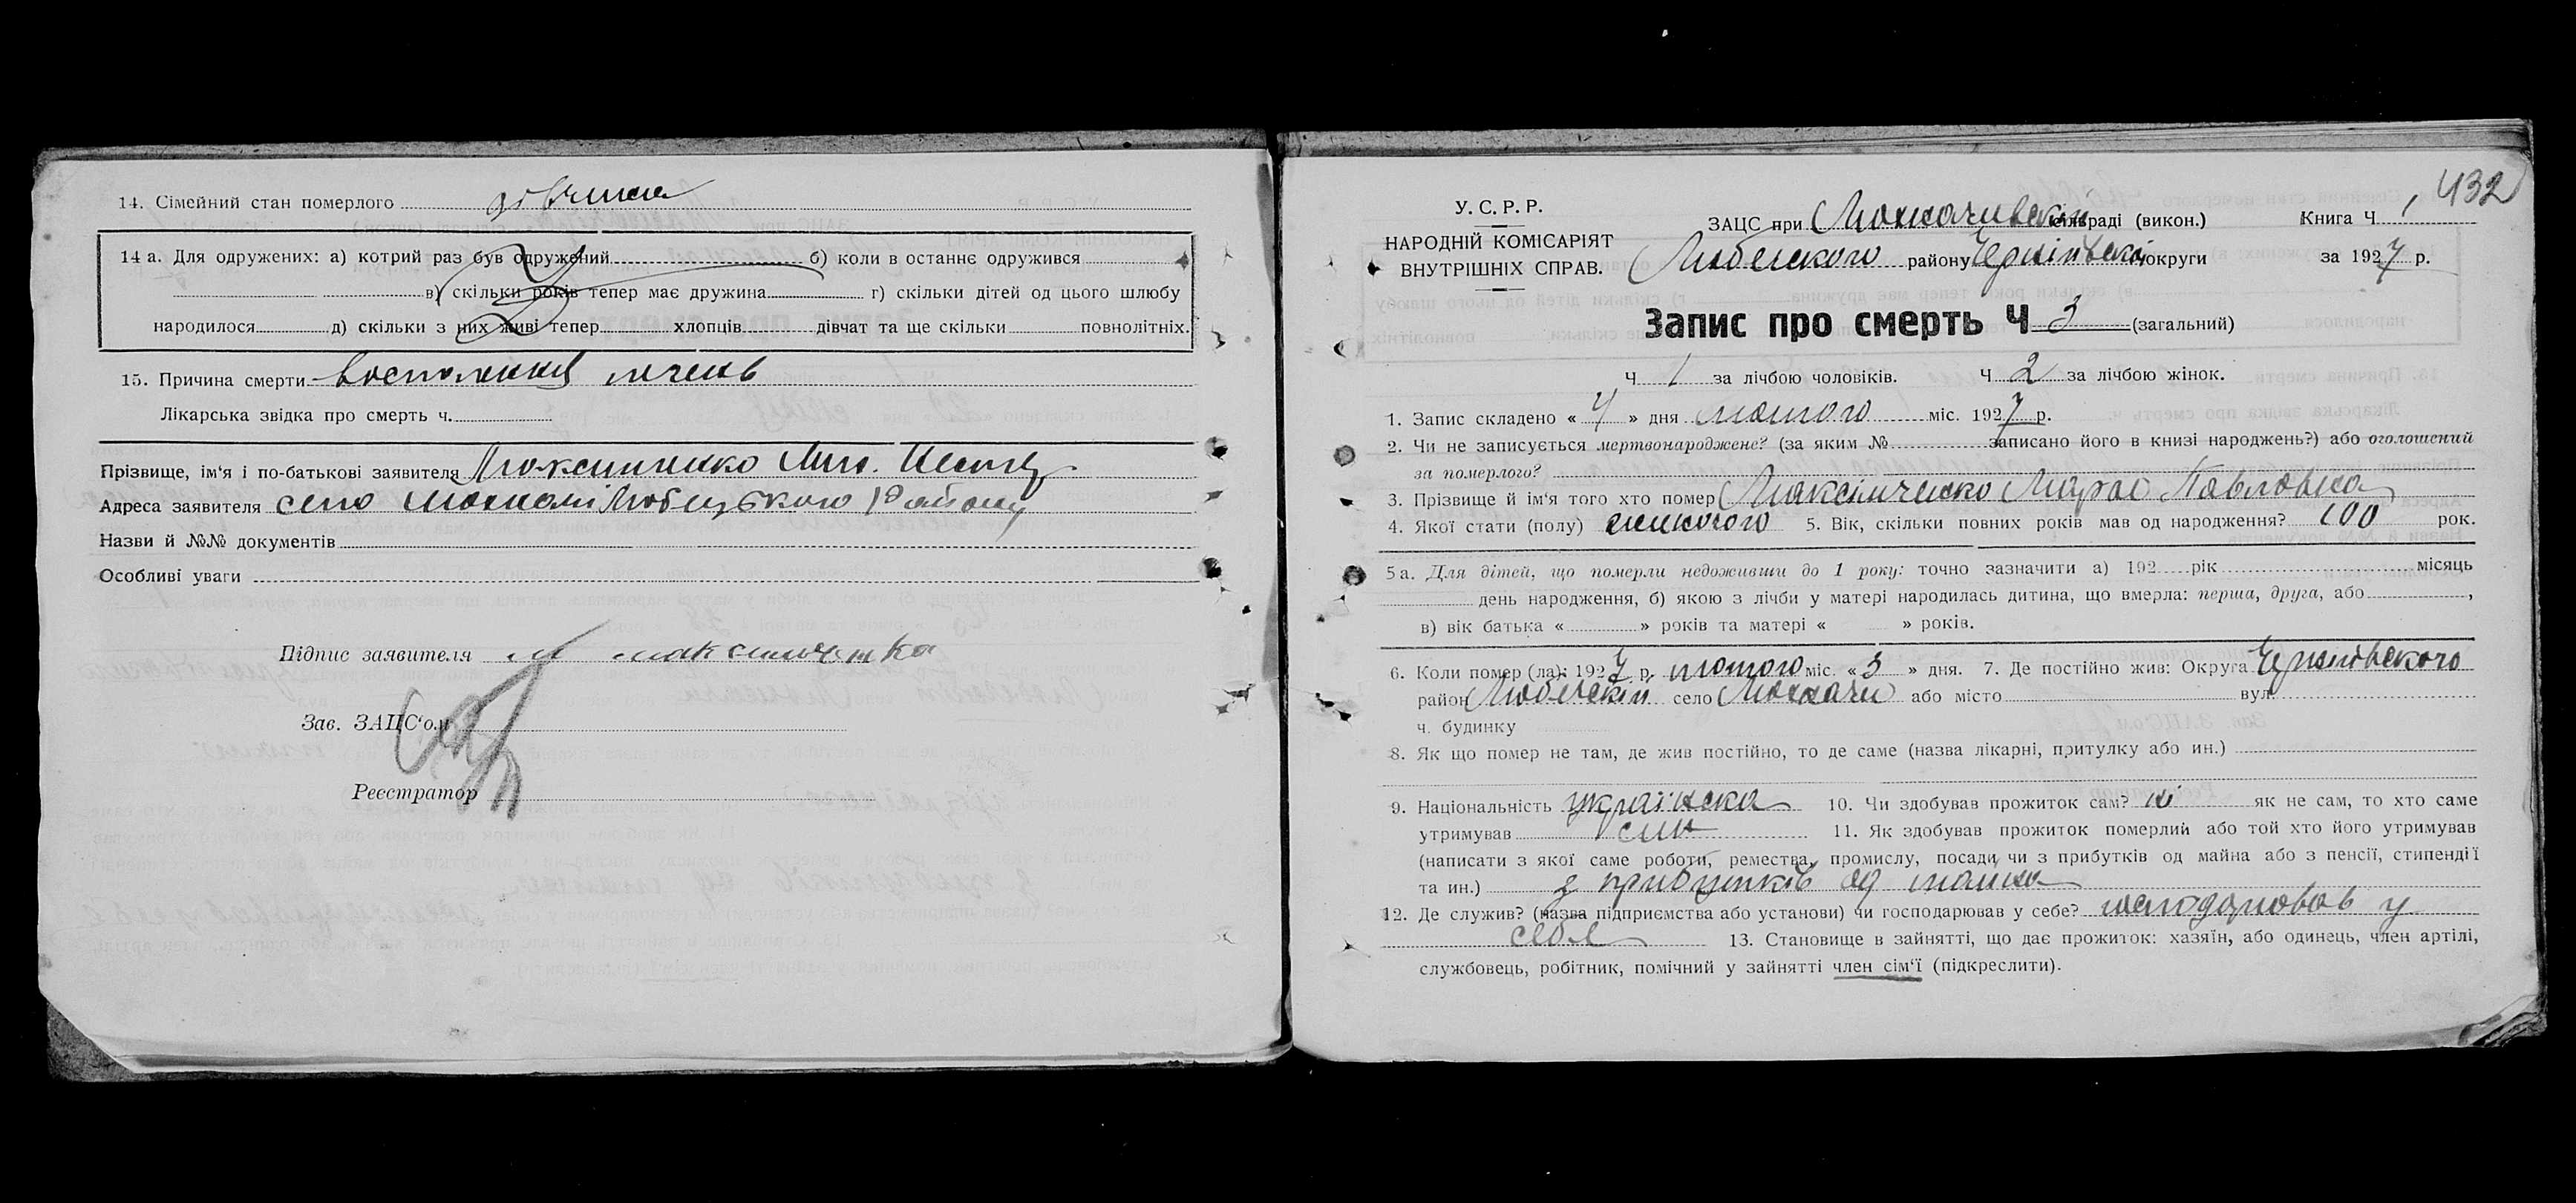 14. Сімейний стан померлого дівчина
14 а. Для одружених: а) котрий раз був одружений б) коли в останнє одружився
в) скільки років тепер має дружина г) скільки дітей од цього шлюбу
народилося д) скільки з них живі тепер хлопців дівчат та ще скільки повнолітніх.
15. Причина смерти
Лікарська звідка про смерть ч.
Прізвище, ім'я і по-батькові заявителя
Адреса заявителя село району
Назви й №№ документів
Особливі уваги
Підпис заявителя
Зав. ЗАЦС'ом
Реєстратор
432
У. С. Р. Р.
НАРОДНІЙ КОМІСАРІЯТ
ВНУТРІШНІХ СПРАВ.
ЗАЦС при сільраді (викон.) Книга Ч
району округи за 1927 р.
Запис про смерть Ч 3 (загальний)
Ч 1 за лічбою чоловіків. Ч 2 за лічбою жінок.
1. Запис складено « 4 » дня лютого міс. 1927 р.
2. Чи не записується мертвонароджене? (за яким № записано його в книзі народжень?) або оголошений
за померлого?
3. Прізвище й ім'я того хто помер Максімченко Павловна
4. Якої стати (полу) жиночого 5. Вік, скільки повних років мав од народження? 100 рок.
5 а. Для дітей, що померли недоживши до 1 року: точно зазначити а) 192 рік місяць
день народження, б) якою з лічби у матері народилась дитина, що вмерла: перша, друга, або ,
в) вік батька « » років та матері « » років.
6. Коли помер (ла): 1927 р. лютого міс. «3 » дня. 7. Де постійно жив: Округа Чернігівского
район село Мохначи або місто вул.
ч. будинку
8. Як що помер не там, де жив постійно, то де саме (назва лікарні, притулку або ин.)
9. Національність українска 10. Чи здобував прожиток сам? ні як не сам, то хто саме
утримував син 11. Як здобував прожиток померлий або той хто його утримував
(написати з якої саме роботи, ремества, промислу, посади чи з прибутків од майна або з пенсії, стипендії
та ин.) з прибутків од майна
12. Де служив? (назва підприємства або установи) чи господарював у себе? господарював у
себе 13. Становище в зайнятті, що дає прожиток: хазяїн, або одинець, член артілі,
службовець, робітник, помічний у зайнятті член сім'ї (підкреслити).